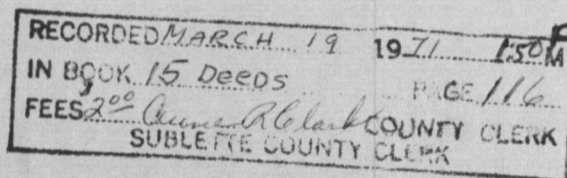 RECORDED MARCH 19 1971 1:50 P M
IN BOOK 15 Deeds PAGE 116
FEES $2.00 R Clark COUNTY CLERK
SUBLETTE COUNTY CLERK